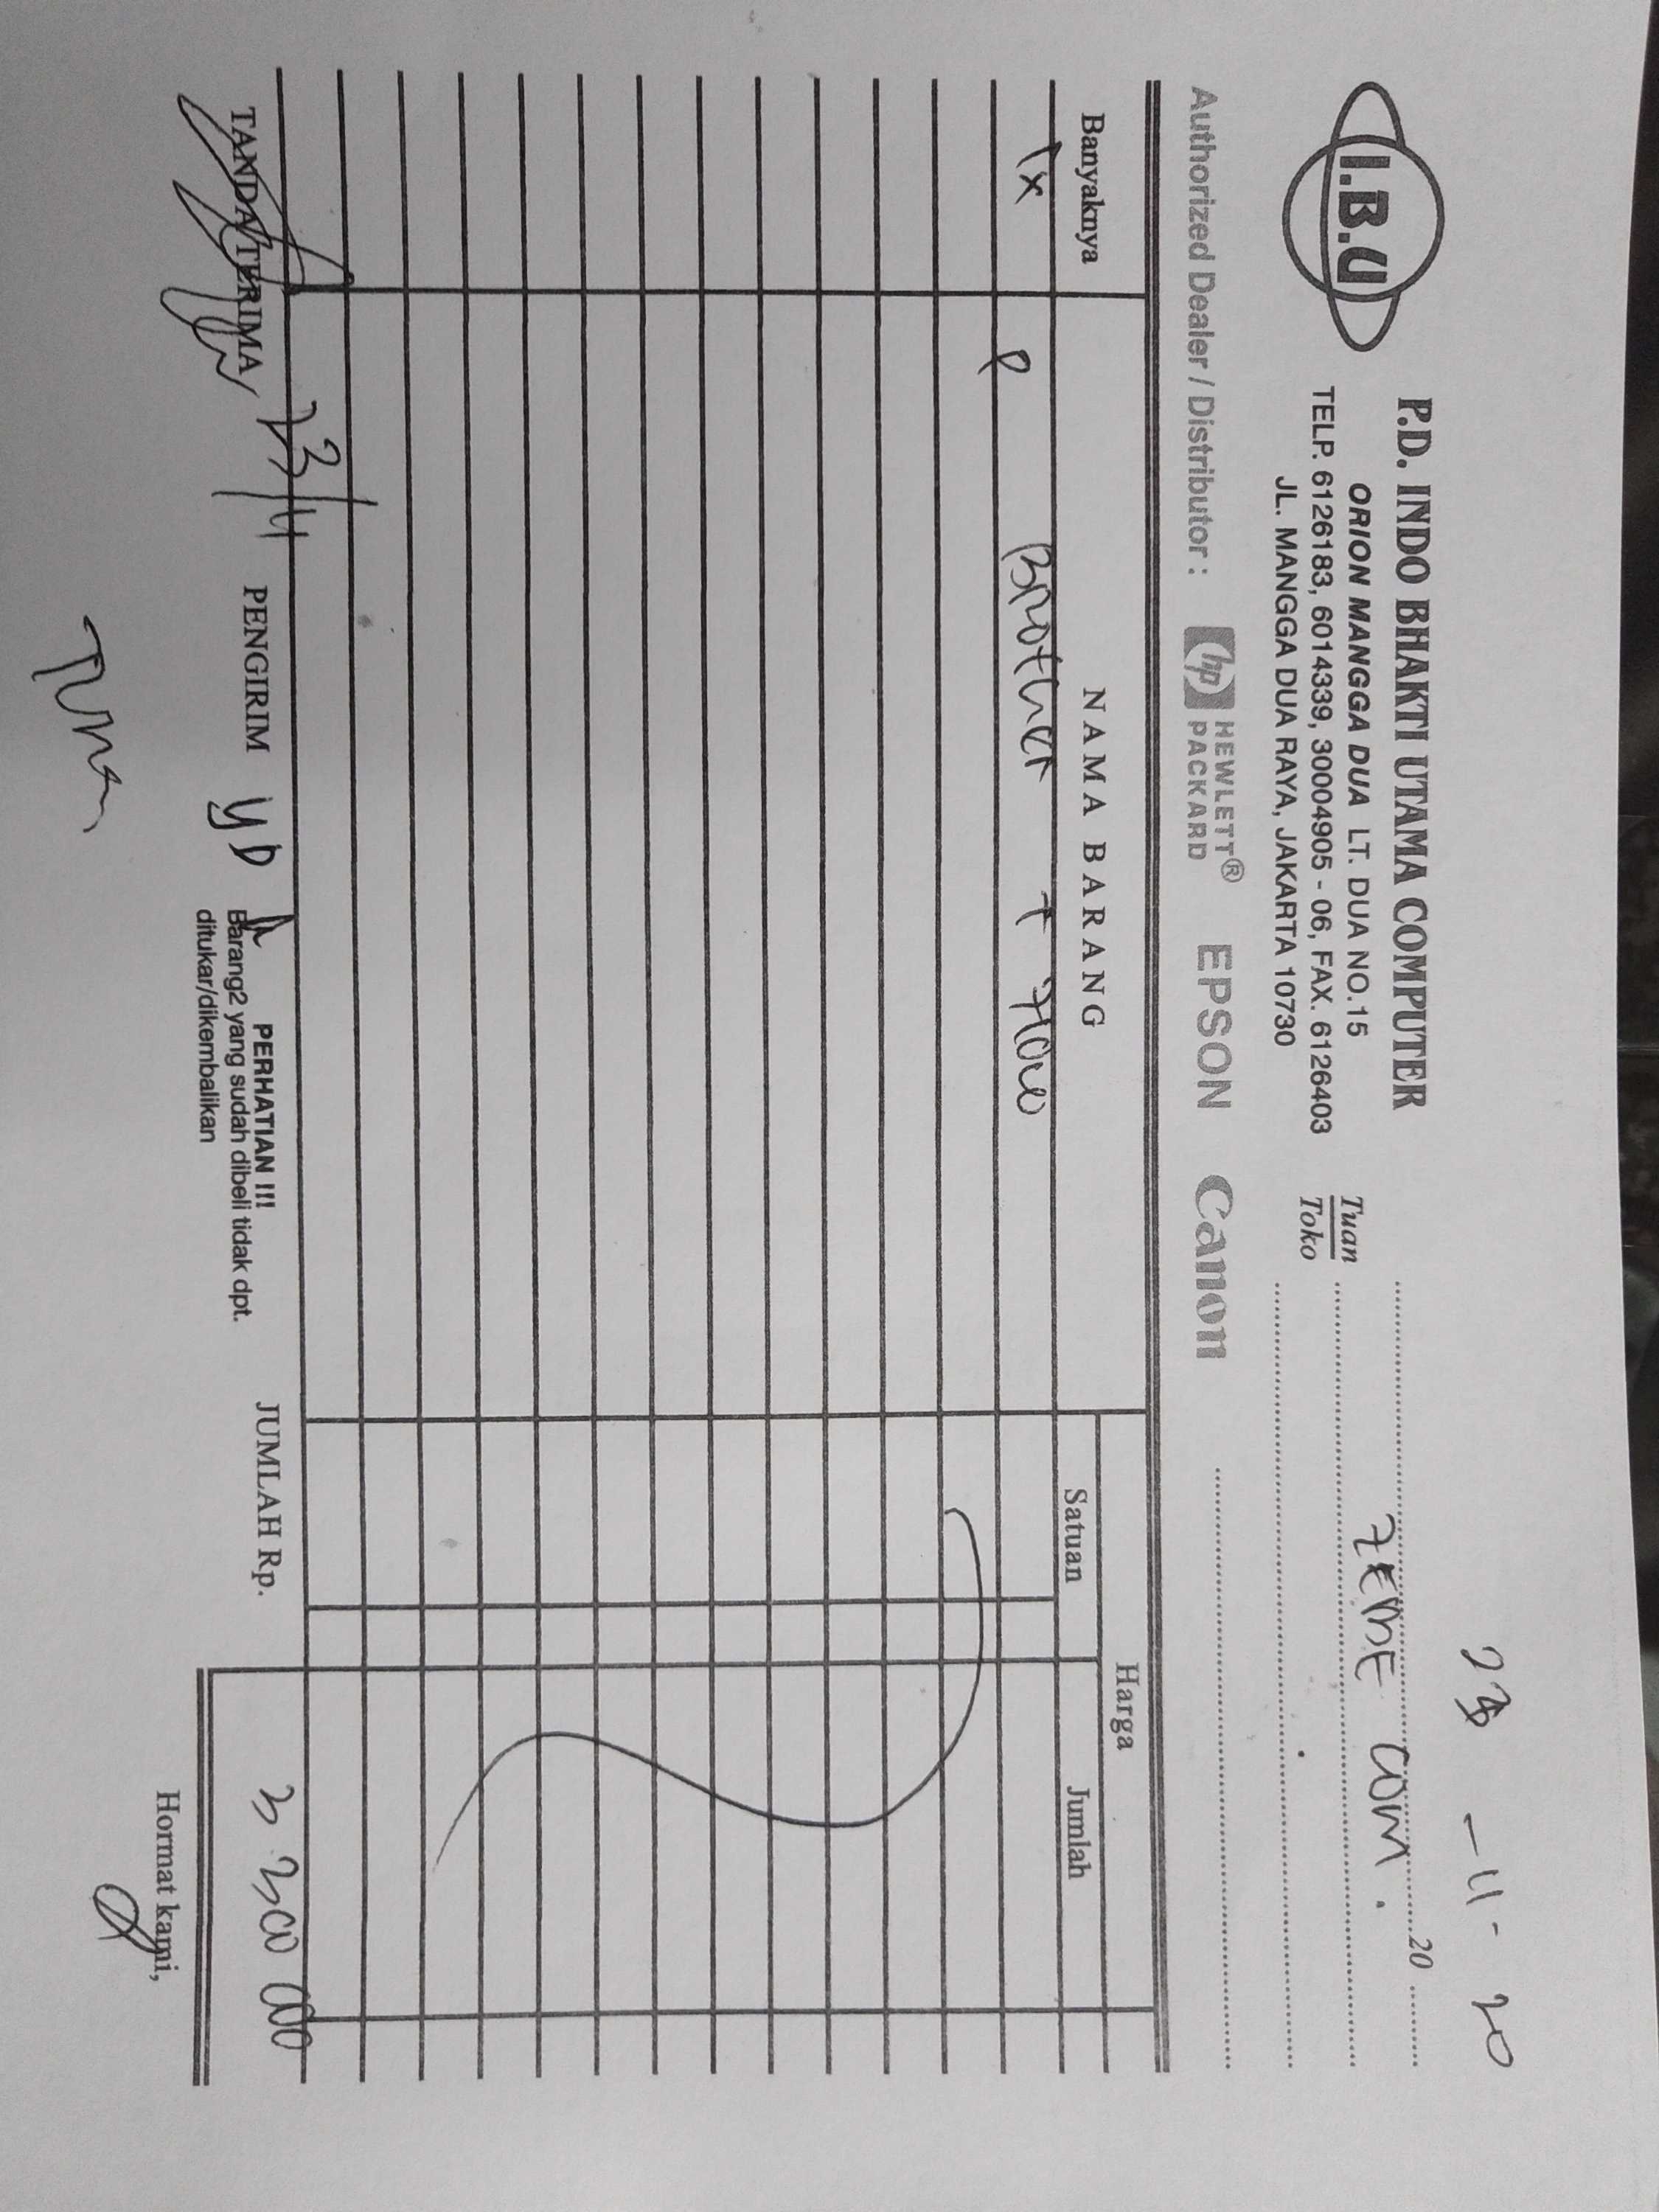 23 - 11 - 20
I.B.U
P.D. INDO BHAKTI UTAMA COMPUTER
ORION MANGGA DUA LT. DUA NO.15
TELP. 6126183, 6014339, 30004905 - 06, FAX. 6126403
JL. MANGGA DUA RAYA, JAKARTA 10730
....................20 .........
Tuan
Toko
COM.
Authorized Dealer / Distributor : hp HEWLETT® PACKARD EPSON Canon
Banyaknya NAMA BARANG Harga
Satuan Jumlah
1x Brother T
TANDA TERIMA 23/11 PENGIRIM PERHATIAN !!! JUMLAH Rp. 3 300 000
Barang2 yang sudah dibeli tidak dpt.
ditukar/dikembalikan
Hormat kami,